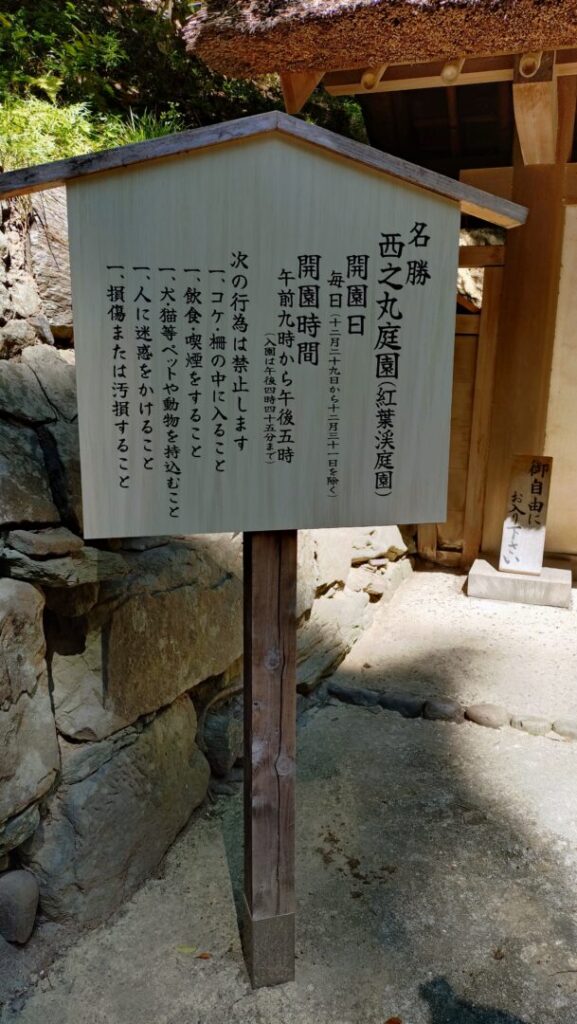 名勝
西之丸庭園（紅葉渓庭園）
開園日
毎日（十二月二十九日から十二月三十一日を除く）
開園時間
午前九時から午後五時
（入園は午後四時四十五分まで）
次の行為は禁止します
一、コケ・柵の中に入ること
一、飲食・喫煙をすること
一、犬・猫等ペットや動物を持込むこと
一、人に迷惑をかけること
一、損傷または汚損すること
御自由に
お入り下さい